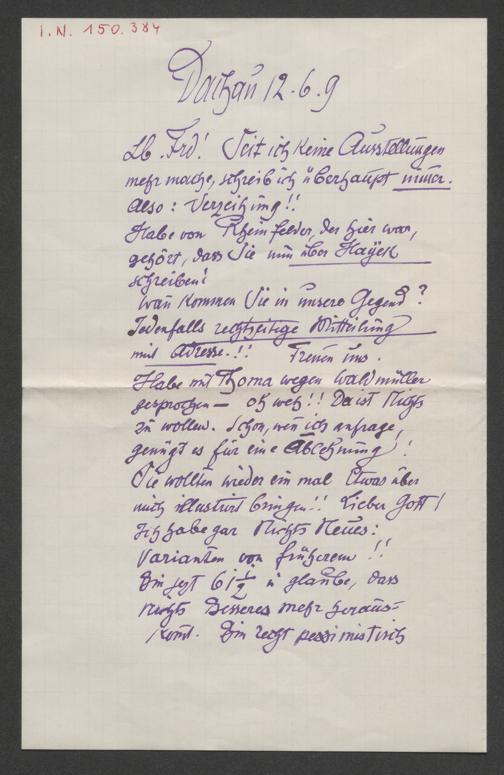 I.N. 150.384
Dachau 12.6.9
Lb. Frd! Seit ich keine Ausstellungen
mehr mache, schreib ich überhaupt
Also: Verzeihung!!
Habe von Rheinfelder, der hier war,
gehört, dass Sie nun über Hayek
schreiben!
Wan kommen Sie in unsere Gegend?
Jedenfalls rechtzeitige Mitteilung
mit Adresse.!! Freuen uns.
Habe mit Thoma wegen Waldmüller
gesprochen — oh weh!! Da ist Nichts
zu wollen. Schon, wen ich anfrage,
genügt es für eine Ablehnung!
Sie wollten wieder ein mal Etwas über
mich illustrirt bringen!! Lieber Gott!
Ich habe gar Nichts Neues:
Varianten von früherem!!
Bin jezt 61½ u glaube, dass
Nichts Besseres mehr heraus-
komt. Bin recht pessimistisch